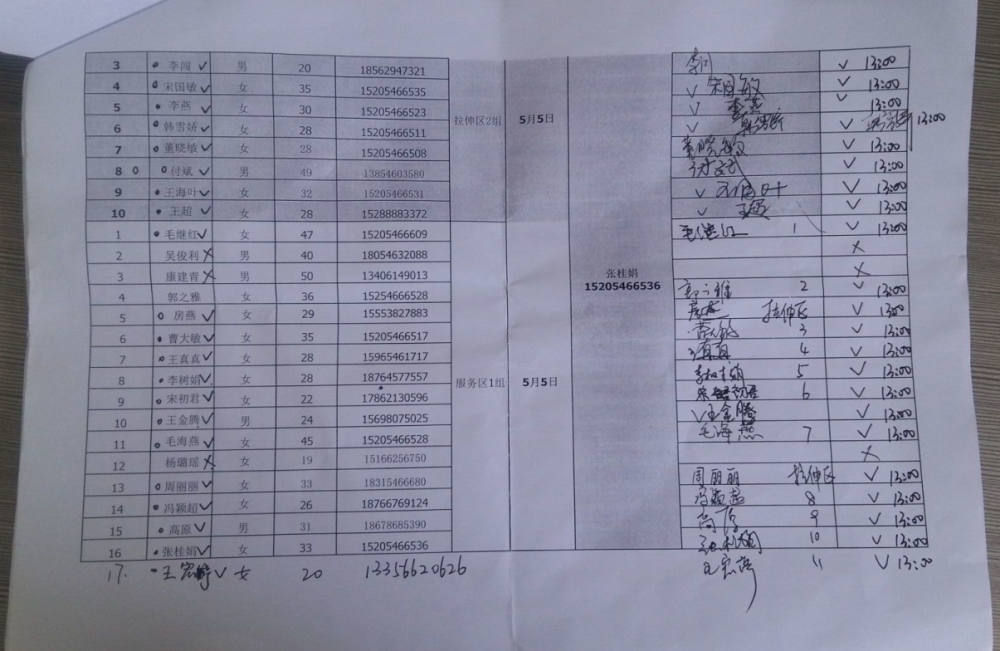 3 李闯 ✓ 男 20 18562947321 ✓ 13:00
4 宋国敏 ✓ 女 35 15205466535 ✓ 宋国敏 ✓ 13:00
5 李燕 ✓ 女 30 15205466523 ✓ 李燕 ✓ 13:00
6 韩雪娇 ✓ 女 28 15205466511 拉伸区2组 5月5日 ✓ ✓ 13:00
7 董晓敏 ✓ 女 28 15205466508 董晓敏 ✓ 13:00
8 0 付斌 ✓ 男 49 13854603580 付斌 ✓ 13:00
9 王海叶 ✓ 女 32 15205466531 ✓ 王海叶 ✓ 13:00
10 王超 ✓ 女 28 15288883372 ✓ 王超 ✓ 13:00
1 毛继红 ✓ 女 47 15205466609 毛继红 1 ✓ 13:00
2 吴俊利 × 男 40 18054632088 ×
3 康建青 × 男 50 13406149013 张桂娟 ×
4 郭之雅 女 36 15254666528 15205466536 郭之雅 2 ✓ 13:00
5 房燕 ✓ 女 29 15553827883 房燕 拉伸区 ✓ 13:00
6 曹大敏 ✓ 女 35 15205466517 曹大敏 3 ✓ 13:00
7 王真真 ✓ 女 28 15965461717 王真真 4 ✓ 13:00
8 李树娟 ✓ 女 28 18764577557 服务区1组 5月5日 李树娟 5 ✓ 13:00
9 宋初君 ✓ 女 22 17862130596 6 ✓ 13:00
10 王金腾 ✓ 男 24 15698075025 ✓ 王金腾 ✓ 13:00
11 毛海燕 ✓ 女 45 15205466528 毛海燕 7 ✓ 13:00
12 杨璐瑶 × 女 19 15166256750 ×
13 周丽丽 ✓ 女 33 18315466680 周丽丽 拉伸区 ✓ 13:00
14 冯颖超 ✓ 女 26 18766769124 冯颖超 8 ✓ 13:00
15 高原 ✓ 男 31 18678685390 高原 9 ✓ 13:00
16 张桂娟 ✓ 女 33 15205466536 张桂娟 10 ✓ 13:00
17. 王 ✓ 女 20 13356620626 11 ✓ 13:00